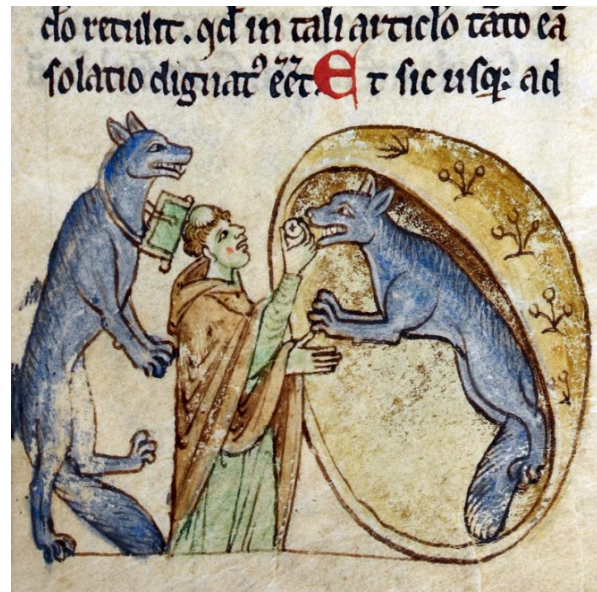 do retulit. qđ in tali articło tāto eā
solatio dignatꝰ eēt. Et sic usqꝫ ad